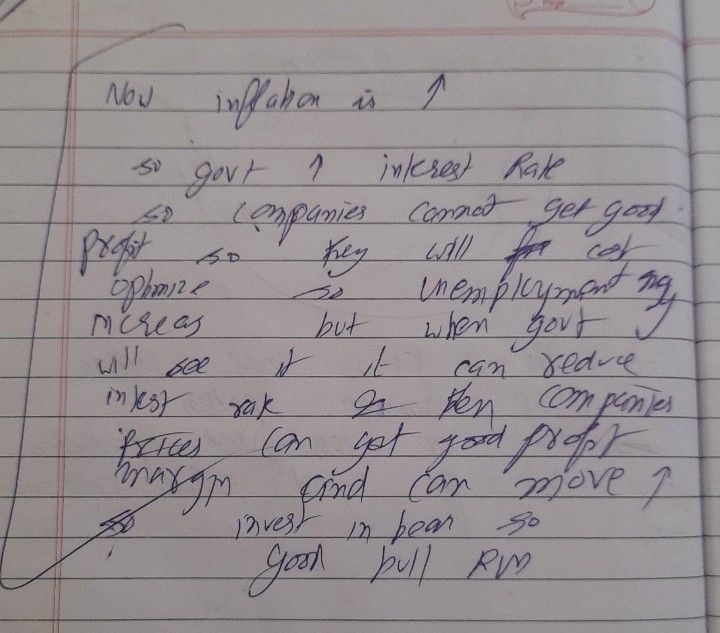 Now inflation is ↑
so govt ↑ interest Rate
so companies cannot get good
profit so they will cost
optimize so unemployment
increas but when govt
will see it it can reduce
intest rate then companies
prices can get good profit
margin and can move ↑
so invest in bear so
good bull run